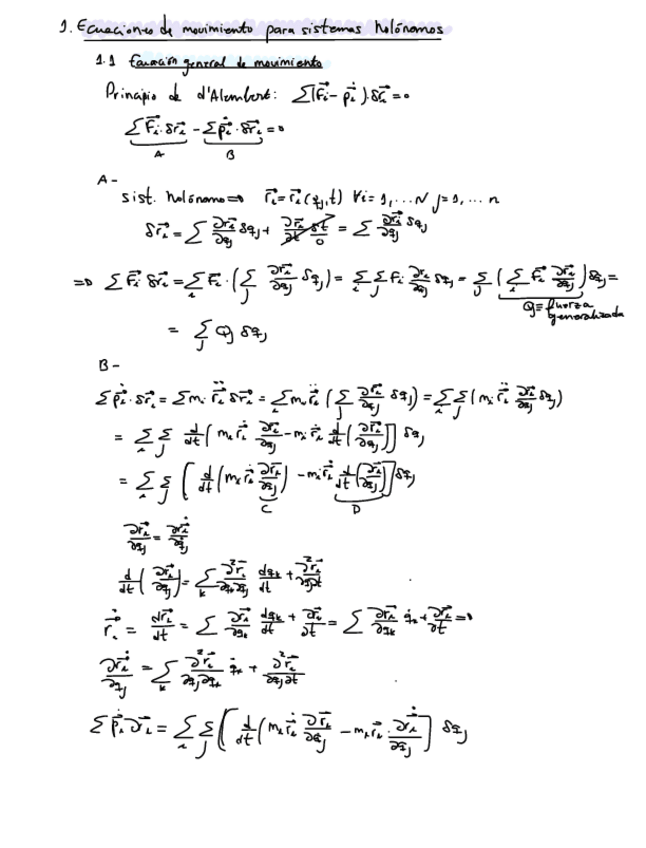 1. Ecuaciones de movimiento para sistemas holónomos
1.1 Ecuación general de movimiento
Principio de d'Alembert: Σ(F⃗ᵢ - ṗ⃗ᵢ)·δr⃗ᵢ = 0
ΣF⃗ᵢ·δr⃗ᵢ - Σṗ⃗ᵢ·δr⃗ᵢ = 0
A B
A -
sist. holónomo ⇒ r⃗ᵢ = r⃗ᵢ(qⱼ,t) ∀i = 1, ... N j = 1, ... n
δr⃗ᵢ = Σ ∂r⃗ᵢ/∂qⱼ δqⱼ + ∂r⃗ᵢ/∂t δt = Σ ∂r⃗ᵢ/∂qⱼ δqⱼ
0
⇒ Σ F⃗ᵢ δr⃗ᵢ = Σᵢ F⃗ᵢ·(Σⱼ ∂r⃗ᵢ/∂qⱼ δqⱼ) = Σᵢ Σⱼ Fᵢ·∂r⃗ᵢ/∂qⱼ δqⱼ = Σⱼ (Σᵢ F⃗ᵢ ∂r⃗ᵢ/∂qⱼ) δqⱼ =
Qⱼ = fuerza
generalizada
= Σⱼ Qⱼ δqⱼ
B -
Σṗ⃗ᵢ·δr⃗ᵢ = Σmᵢ r̈⃗ᵢ δr⃗ᵢ = Σᵢ mᵢ r̈⃗ᵢ (Σⱼ ∂r⃗ᵢ/∂qⱼ δqⱼ) = Σᵢ Σⱼ (mᵢ r̈⃗ᵢ ∂r⃗ᵢ/∂qⱼ δqⱼ)
= Σᵢ Σⱼ d/dt (mᵢ ṙ⃗ᵢ ∂r⃗ᵢ/∂qⱼ - mᵢ ṙ⃗ᵢ d/dt (∂r⃗ᵢ/∂qⱼ)] δqⱼ
= Σᵢ Σⱼ [d/dt (mᵢ ṙ⃗ᵢ ∂r⃗ᵢ/∂qⱼ) - mᵢ ṙ⃗ᵢ d/dt (∂r⃗ᵢ/∂qⱼ)] δqⱼ
C D
∂r⃗ᵢ/∂qⱼ = ∂ṙ⃗ᵢ/∂q̇ⱼ
d/dt (∂r⃗ᵢ/∂qⱼ) = Σₖ ∂²r⃗ᵢ/∂qₖ∂qⱼ dqₖ/dt + ∂²r⃗ᵢ/∂qⱼ∂t
ṙ⃗ᵢ = dr⃗ᵢ/dt = Σ ∂r⃗ᵢ/∂qₖ dqₖ/dt + ∂r⃗ᵢ/∂t = Σ ∂r⃗ᵢ/∂qₖ q̇ₖ + ∂r⃗ᵢ/∂t ⇒
∂ṙ⃗ᵢ/∂qⱼ = Σₖ ∂²r⃗ᵢ/∂qⱼ∂qₖ q̇ₖ + ∂²r⃗ᵢ/∂qⱼ∂t
Σṗ⃗ᵢ ∂r⃗ᵢ = Σᵢ Σⱼ [d/dt (mᵢ ṙ⃗ᵢ ∂ṙ⃗ᵢ/∂q̇ⱼ - mᵢ ṙ⃗ᵢ·∂ṙ⃗ᵢ/∂qⱼ] δqⱼ